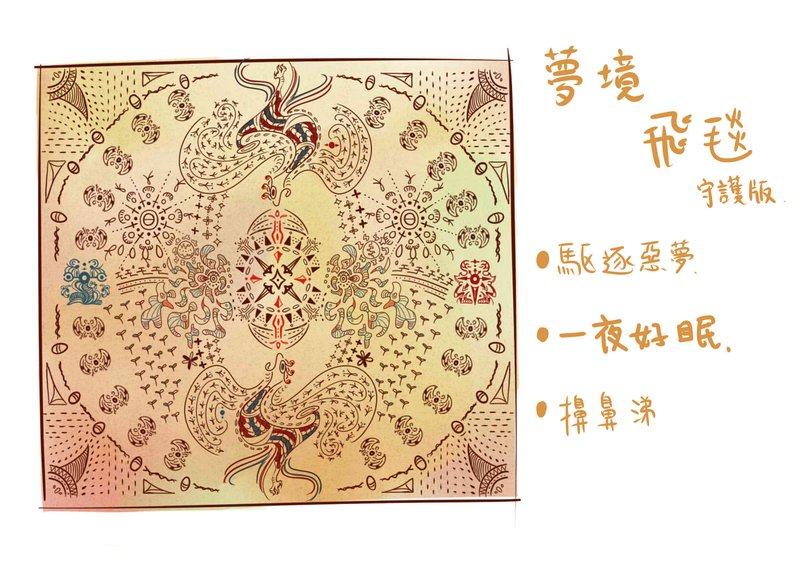 夢境
飛毯
守護版.
• 驅逐惡夢.
• 一夜好眠.
• 擤鼻涕